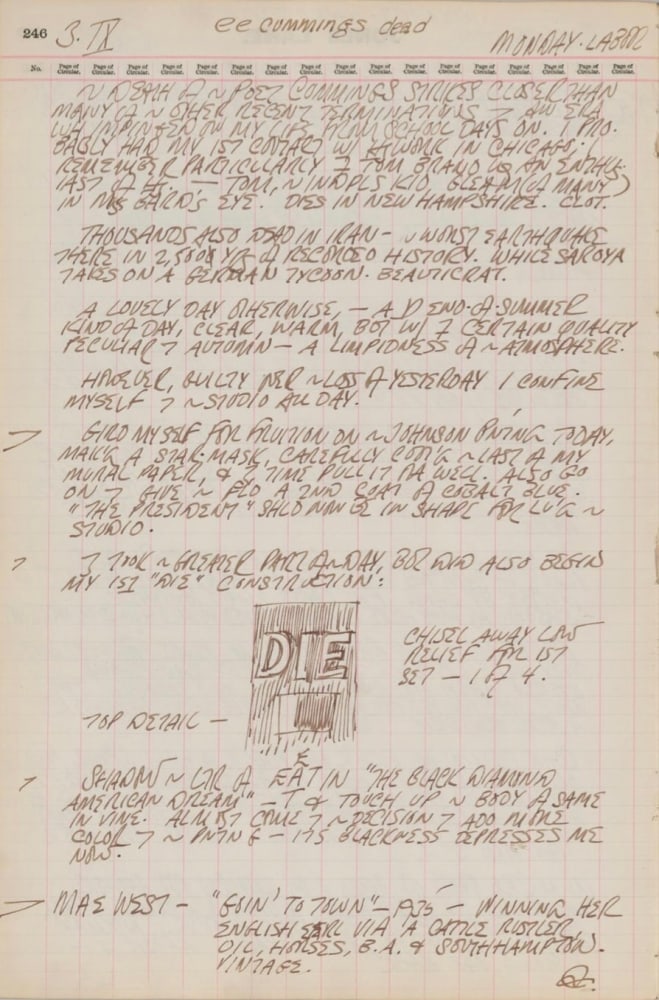 246 3. IX ee cummings dead MONDAY. LABOR
No. Page of Circular. Page of Circular. Page of Circular. Page of Circular. Page of Circular. Page of Circular. Page of Circular. Page of Circular. Page of Circular. Page of Circular. Page of Circular. Page of Circular. Page of Circular. Page of Circular. Page of Circular. Page of Circular. Page of Circular. Page of Circular. Page of Circular. Page of Circular.
~ DEATH OF ~ POET CUMMINGS STRIKES CLOSER THAN
MANY OF ~ OTHER RECENT TERMINATIONS – AN ERA
WH IMPINGED ON MY LIFE FROM SCHOOL DAYS ON. I PRO-
BABLY HAD MY 1ST CONTACT W/ H WORK IN CHICAGO;
REMEMBER PARTICULARLY TOM BRAND AN ENTHUS-
IAST OF H. — TOM, ~ INDPLS KID, GLEAM (OF MANY)
IN EYE. DIES IN NEW HAMPSHIRE. CLOT.
THOUSANDS ALSO DEAD IN IRAN – ~ WORST EARTHQUAKE
THERE IN 2,500 YRS OF RECORDED HISTORY. WHILE SAROYA
TAKES ON A GERMAN TYCOON. BEAUTICRAT.
A LOVELY DAY OTHERWISE, — A END-OF-SUMMER
KIND OF DAY, CLEAR, WARM, BUT W/ CERTAIN QUALITY
PECULIAR 7 AUTUMN — A LIMPIDNESS OF ~ ATMOSPHERE.
HOWEVER, GUILTY PER ~ LOSS OF YESTERDAY I CONFINE
MYSELF 7 ~ STUDIO ALL DAY.
GIRD MYSELF FOR FRUITION ON ~ JOHNSON PNTNG TODAY,
MAKG A STAR-MASK, CAREFULLY CUTTG ~ LAST OF MY
MURAL PAPER, & TIME PULL IT WELL. ALSO GO
ON 7 GIVE ~ A 2ND COAT OF COBALT BLUE.
"THE PRESIDENT" SHLD NOW BE IN SHAPE FOR ~
STUDIO.
7 TOOK ~ GREATER PART OF ~ DAY, BUT DID ALSO BEGIN
MY 1ST "DIE" CONSTRUCTION:
DIE
CHISEL AWAY LOW
RELIEF FOR 1ST
SET — 1 OF 4.
TOP DETAIL —
E
SHADOW ~ LTR OF EAT IN "THE BLACK DIAMOND
AMERICAN DREAM" — T & TOUCH UP ~ BODY OF SAME
IN VINE. ALMOST COME 7 ~ DECISION 7 ADD MORE
COLOR 7 ~ PNTNG — ITS BLACKNESS DEPRESSES ME
NOW.
MAE WEST — "GOIN' TO TOWN" – 1935 — WINNING HER
ENGLISH EARL VIA A CATTLE RUSTLER,
OIL, HORSES, B.A. & SOUTHHAMPTON.
VINTAGE.